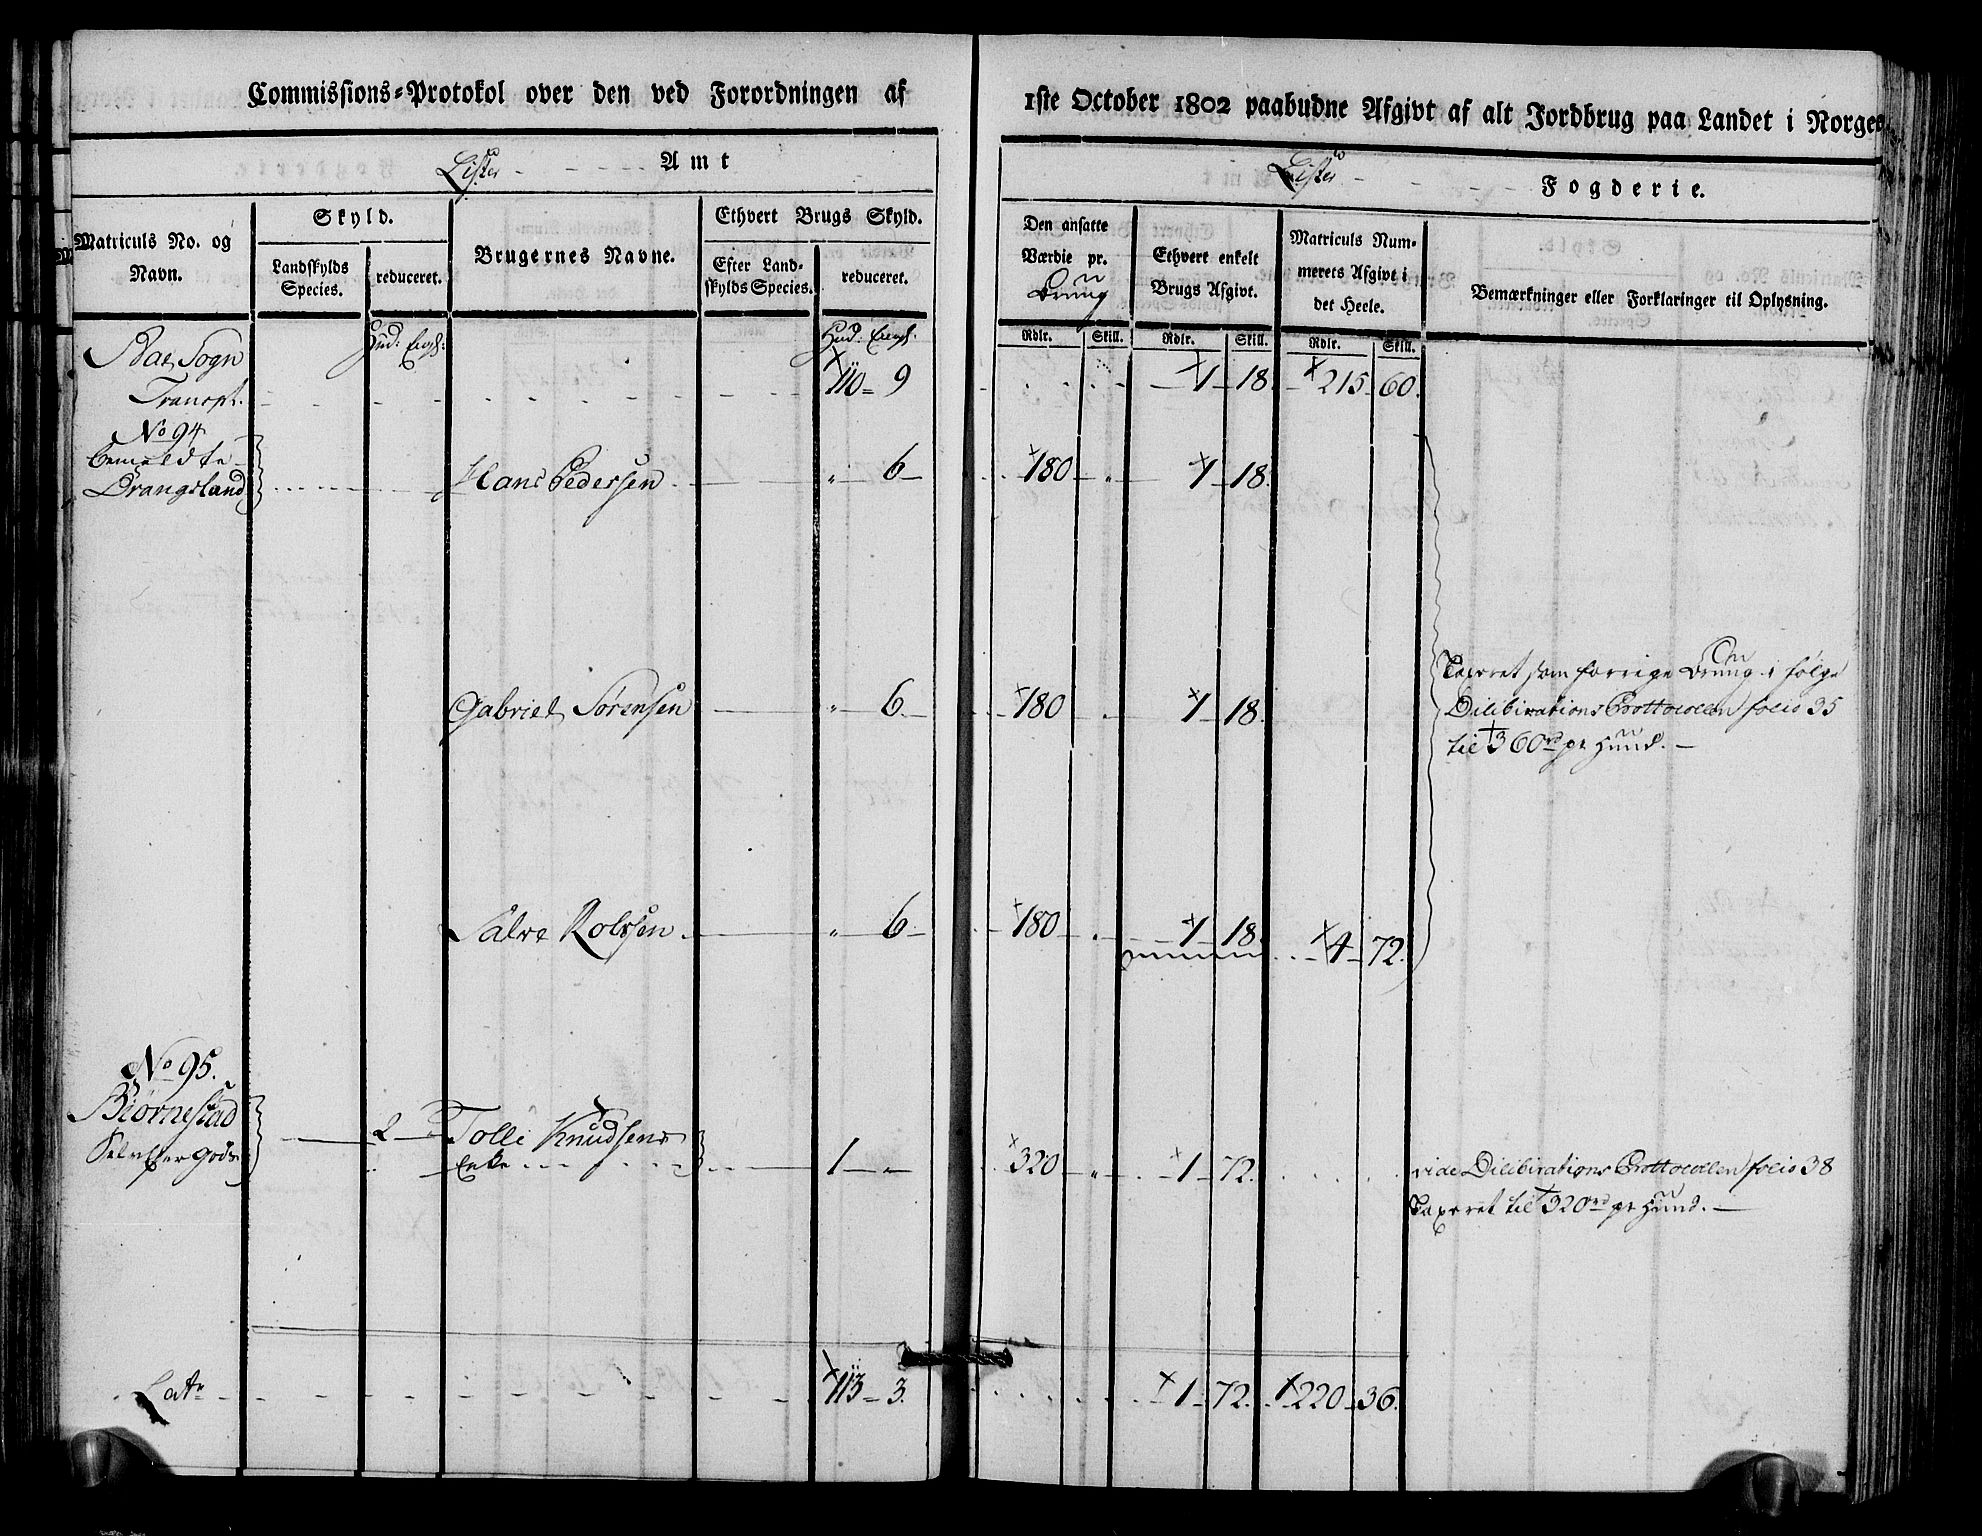 Commissions-Protokol over den ved Forordningen af
1ste October 1802 paabudne Afgivt af alt Jordbrug paa Landet i Norge
Lister Amt
Lister Fogderie.
Matriculs No. og Navn.
Skyld.
Landskylds Species.
reduceret.
Brugernes Navne.
Ethvert Brugs Skyld.
Efter Land-
skylds Species.
reduceret.
Den ansatte
Værdie pr.
Brug
Ethvert enkelt
Brugs Afgivt.
Matriculs Num-
merets Afgivt i
det Heele.
Bemærkninger eller Forklaringer til Oplysning.
Rdlr. Skill. Rdlr. Skill. Rdlr. Skill.
Hud: Eng: Hud: Eng:
Sogn
Transpt. 110 9 1 18 215 60
No 94
bemeldte
Drangsland Hans Pedersen 〃 6 180 〃 1 18
Gabriel Sørensen 〃 6 180 1 18
Taxeret som forrige Brug i følge
Dilibirations Prottocollen folio 35
til 360 rd pr Hud.
Salve Rolfsen 〃 6 180 1 18 4 72
No 95.
Biørnestad
Selveier gods 2 Tolli Knudsens
Enke 1 〃 320 〃 1 72
vide Dilibirations Prottocollen folio 38
Taxeret til 320 rd pr Hud.
Lat. 113 3 1 72 220 36